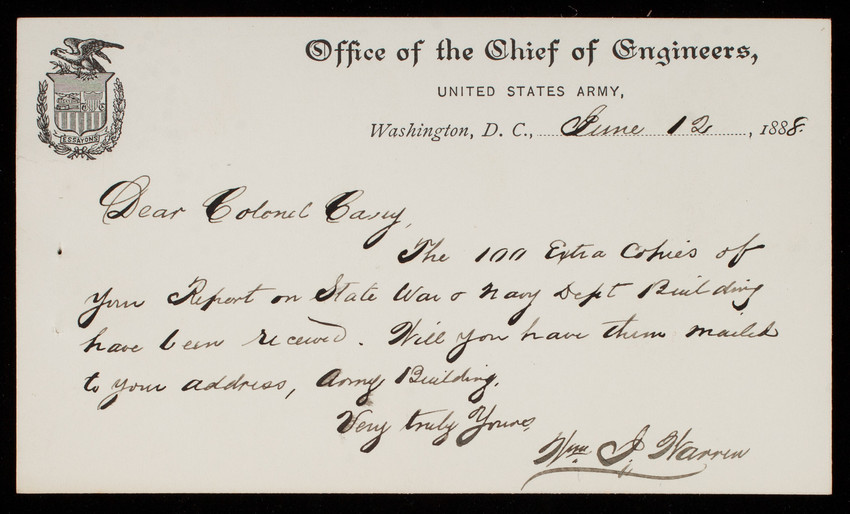 Office of the Chief of Engineers,
UNITED STATES ARMY,
Washington, D. C., June 12, 1888.
ESSAYONS
Dear Colonel Casey,
The 100 Extra Copies of
your Report on State War & Navy Dept Building
have been received. Will you have them mailed
to your address, Army Building.
Very truly Yours,
Wm J. Warren